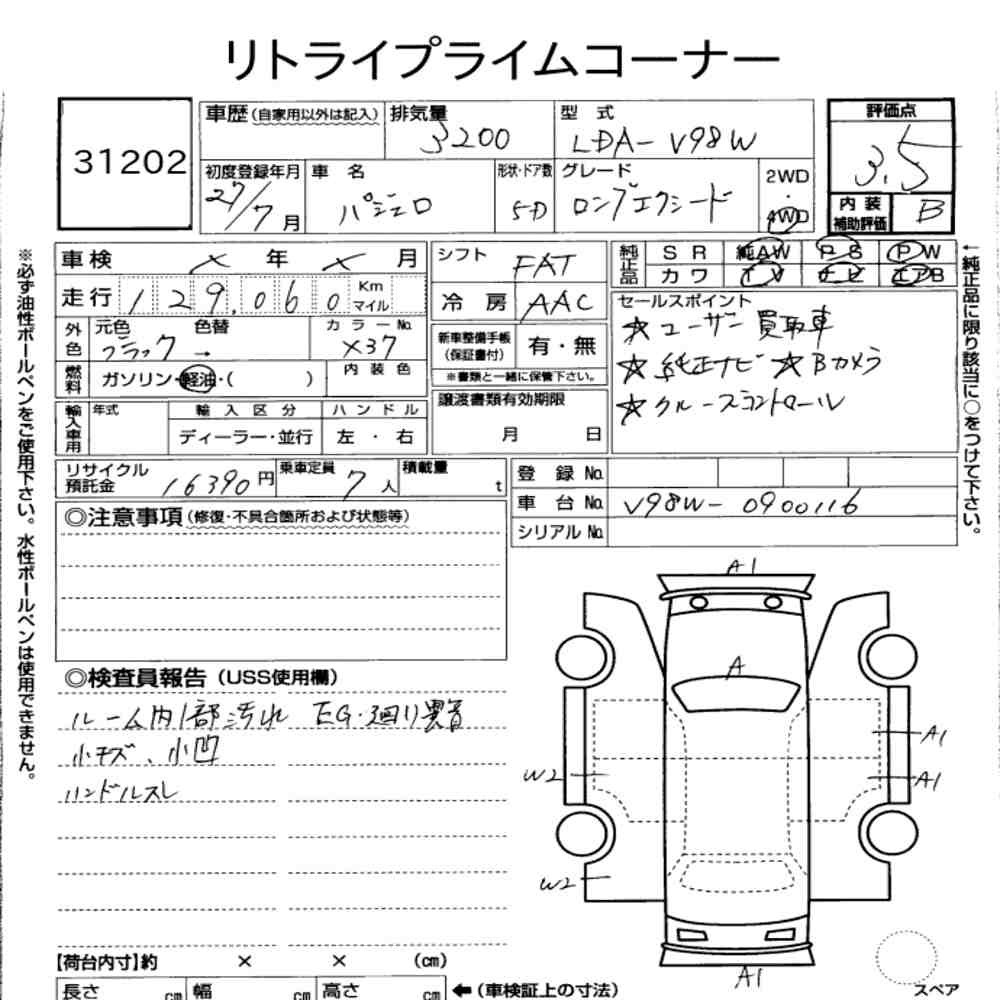 リトライプライムコーナー
31202
車歴(自家用以外は記入) 排気量 3200 型式 LDA-V98W
評価点 3.5
初度登録年月 27/7月 車名 パジェロ 形状・ドア数 5D グレード ロングエクシード 2WD・4WD
内装補助評価 B
車検 × 年 × 月
シフト FAT
純正品 SR 純AW PS PW
カワ TV ナビ エアB
走行 129,060 Km マイル
冷房 AAC
外色 元色 ブラック → 色替 カラーNo. X37
新車整備手帳(保証書付) 有・無
※書類と一緒に保管下さい。
セールスポイント
☆ユーザー買取車
☆純正ナビ ☆Bカメラ
☆クルーズコントロール
燃料 ガソリン・軽油・( ) 内装色
譲渡書類有効期限 月 日
輸入車用 年式 輸入区分 ハンドル
ディーラー・並行 左・右
リサイクル預託金 16390円 乗車定員 7人 積載量 t
登録No.
車台No. V98W-0900116
シリアルNo.
◎注意事項(修復・不具合箇所および状態等)
◎検査員報告(USS使用欄)
ルーム内1部汚れ EG・廻り異音
小キズ、小凹
ハンドルスレ
A1
A
A1
A1
W2
W2
A1
スペア
【荷台内寸】約 × × (cm)
長さ cm 幅 cm 高さ cm ←(車検証上の寸法)
※必ず油性ボールペンをご使用下さい。水性ボールペンは使用できません。
←純正品に限り該当に○をつけて下さい。